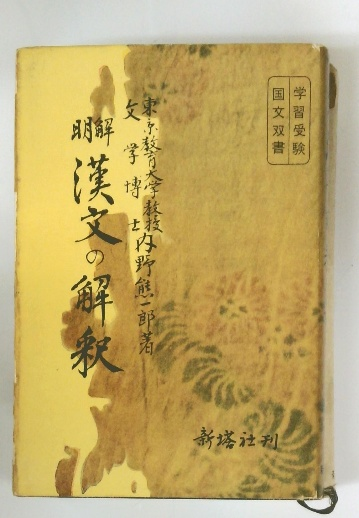 学習受験
国文双書
東京教育大学教授
文学博士
内野熊一郎著
明解
漢文の解釈
新塔社刊